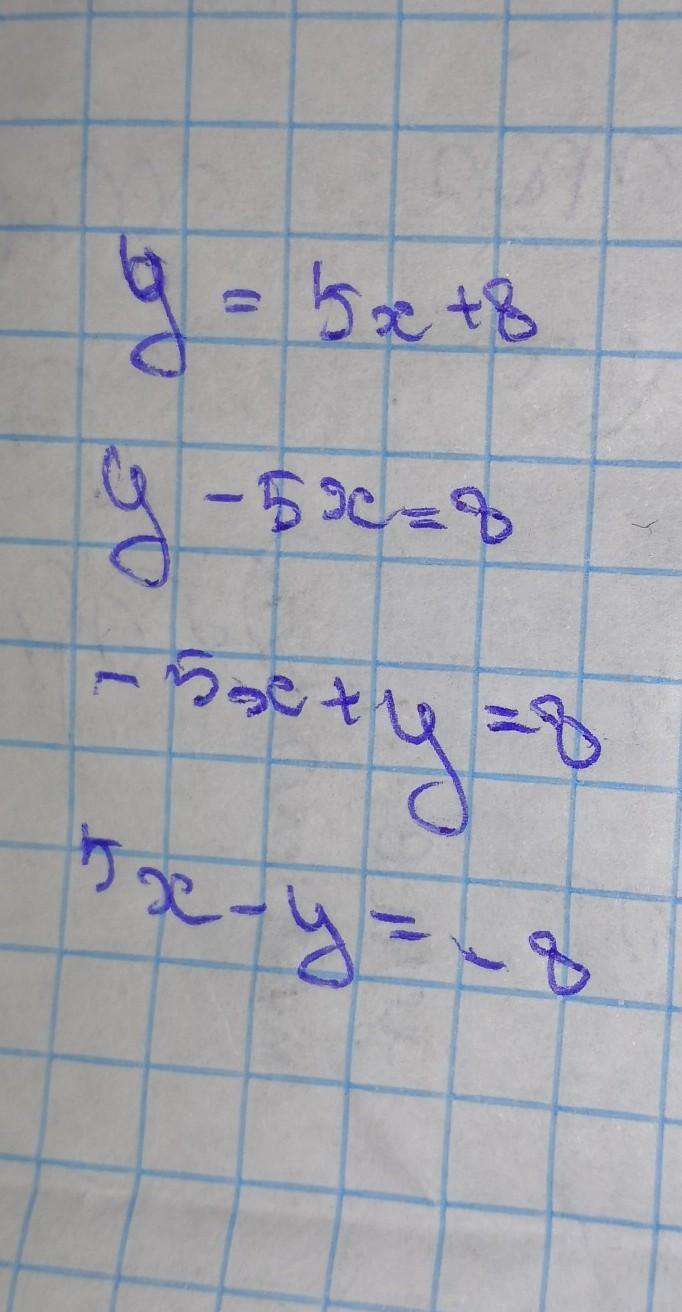 y = 5x + 8
y - 5x = 8
- 5x + y = 8
5x - y = - 8